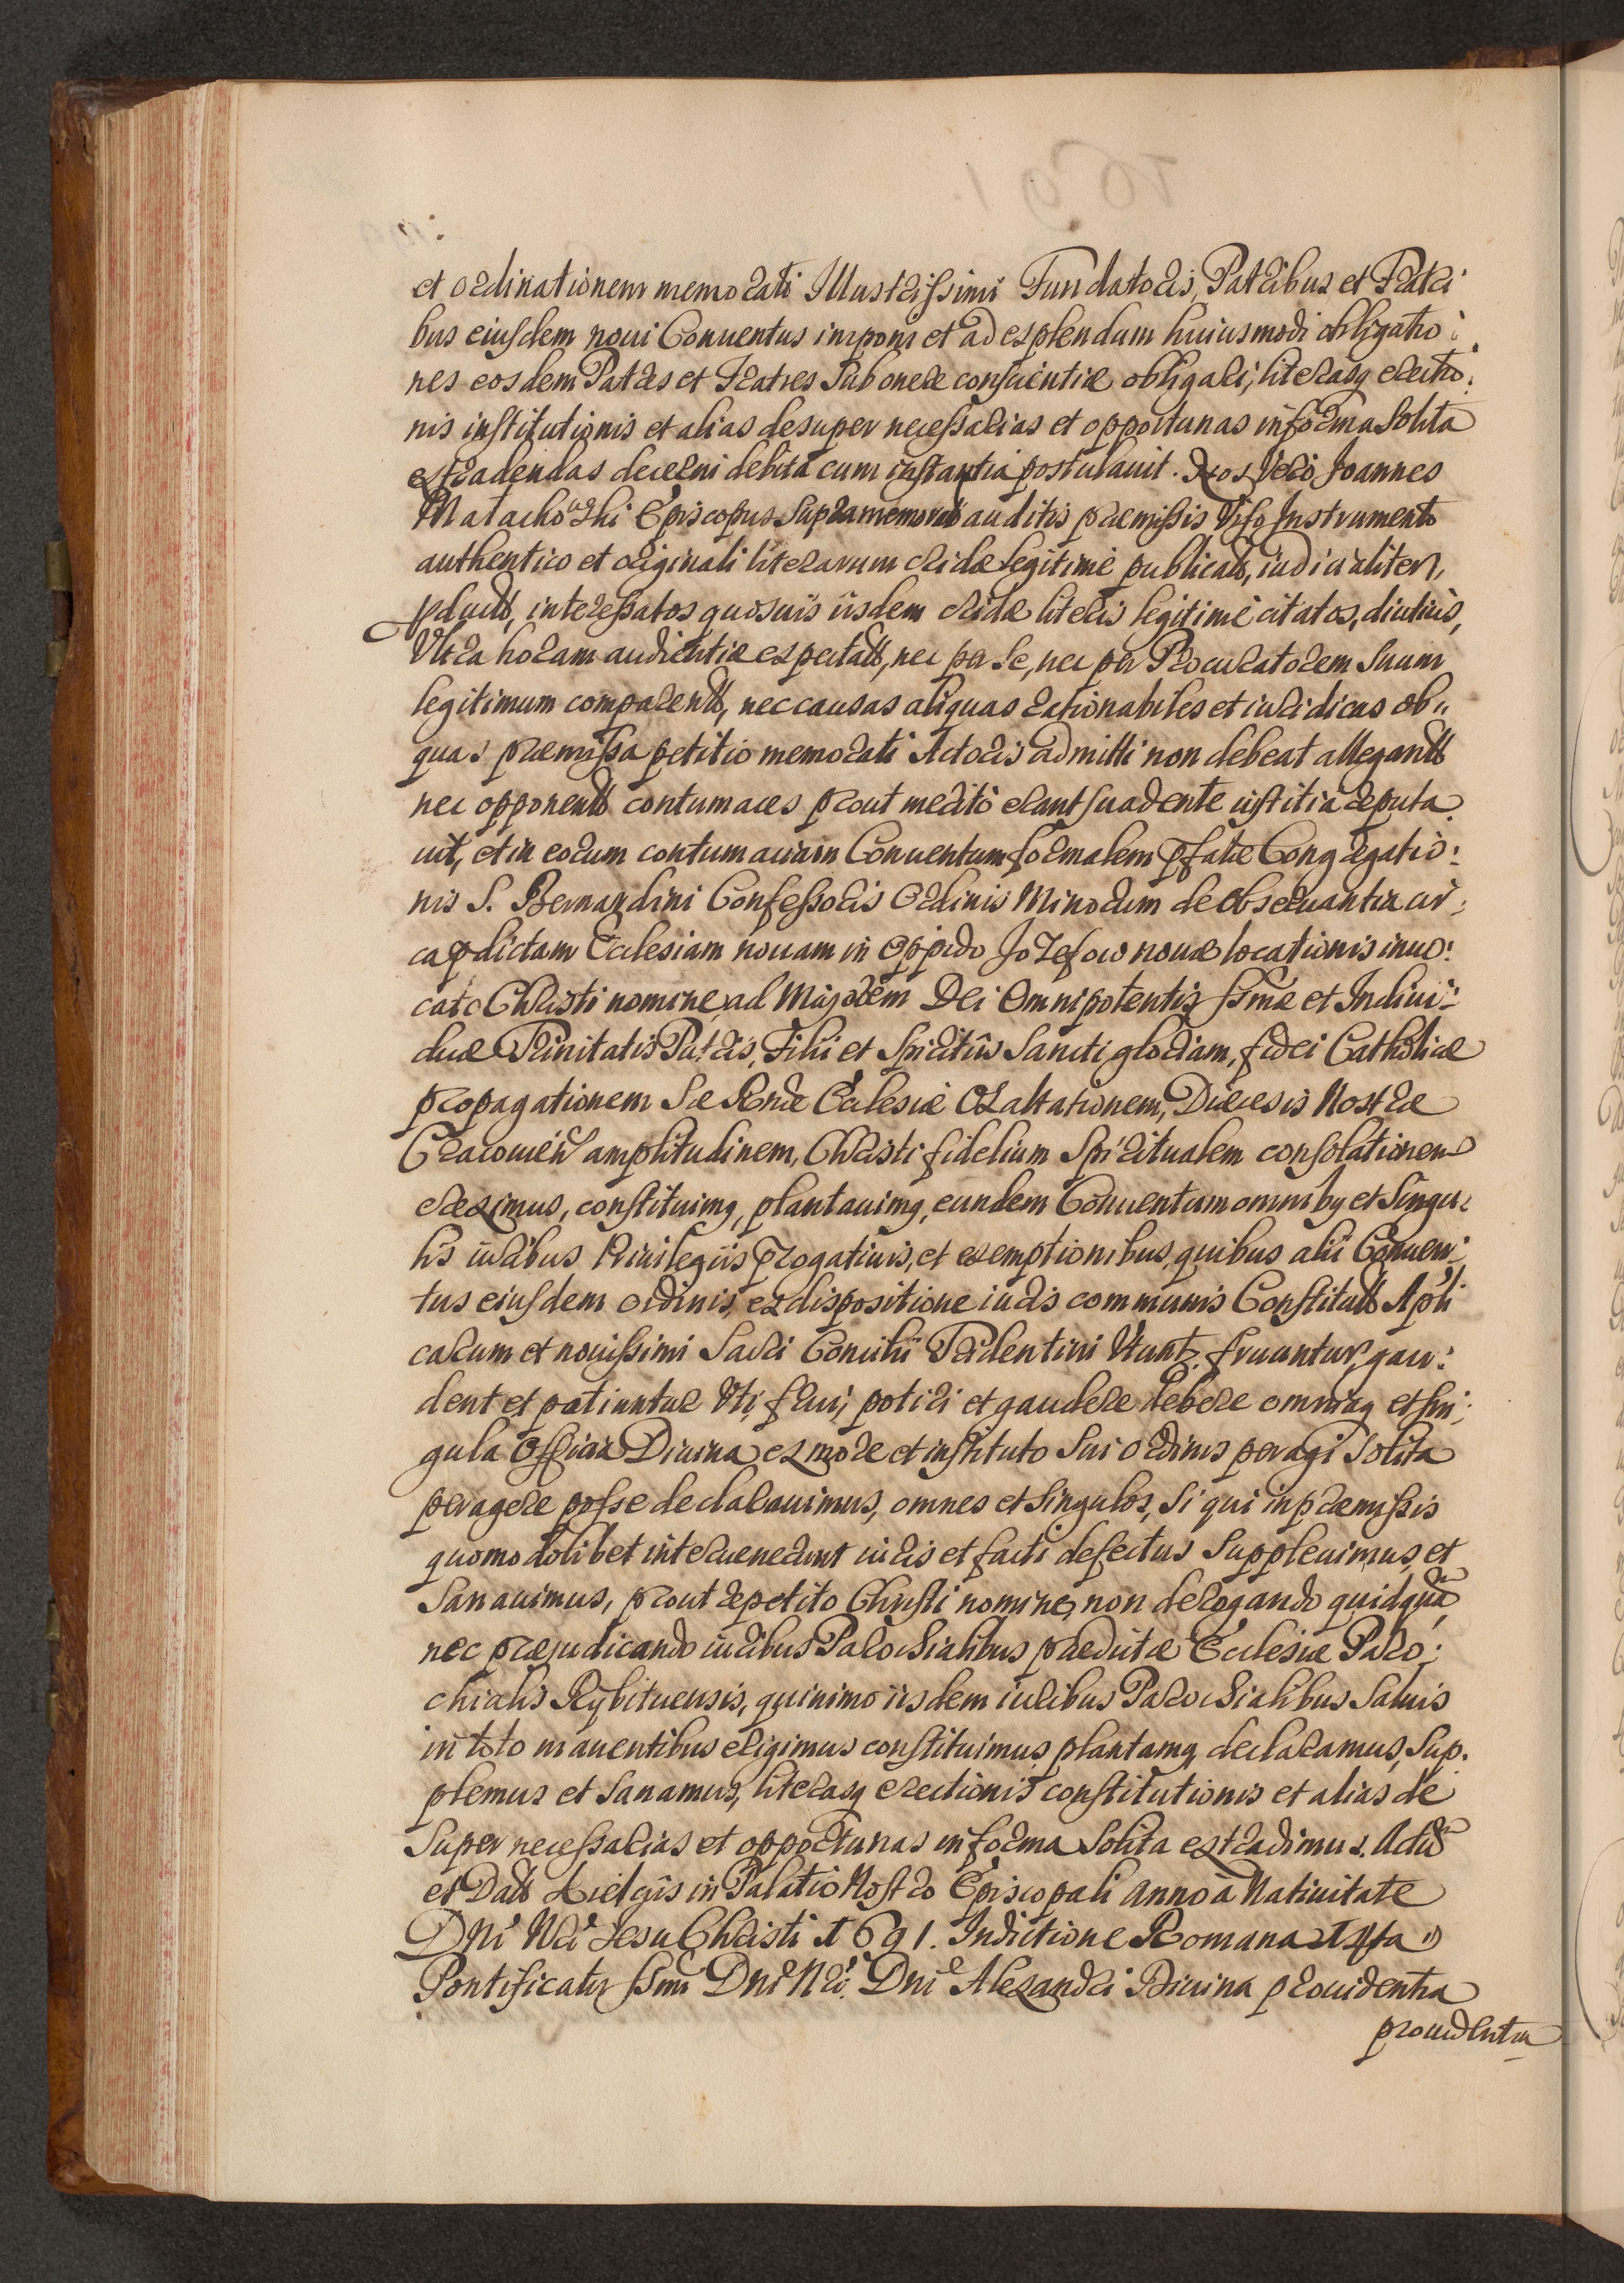 et ordinationem memorati Illustrissimi Fundatoris, Patribus et Fratri
bus eiusdem noui Conuentus imponi et ad explendum huiusmodi obligatio:
nes eosdem Patres et Fratres sub onere conscientiæ obligari, literasq erectio:
nis institutionis et alias desuper necessarias et opportunas in forma solita
extradendas decerni debita cum instantia postulauit. Nos Vero Joannes
Małachowski Episcopus Supramemorat auditis præmissis Viso Instrumento
authentico et originali literarum cridæ legitimè publicatt, iudicialiter,
pductt, interessatos quosuis iisdem cridæ literis legitimè citatos, diutius,
Vltra horam audientiæ expectatt, nec per se, nec per Procuratorem Suum
legitimum comparentt, nec causas aliquas rationabiles et iuridicas ob„
quas præmissa petitio memorati Actoris admitti non debeat allegantt
nec opponentt contumaces prout meritò erant suadente iustitia reputa
uit, et in eorum contumaciam Conuentum formalem pfatæ Congregatio:
nis S. Bernardini Confessoris Ordinis Minorum de Obseruantia cir:
ca pdictam Ecclesiam nouam in Oppido Jozefow nouæ locationis inuo:
cato Christi nomine, ad Maiorem Dei Omnipotentis ssmæ et Indiui:
duæ Trinitatis Patris, Filii et Spiritûs Sancti gloriam, fidei Catholicæ
propagationem Sæ Rnæ Ecclesiæ Exaltationem, Diæcesis Nostræ
Cracouien amplitudinem, Christi fidelium Spiritualem consolationem
ereximus, constituimq, plantauimq, eundem Conuentum omnibq et singu:
lis iuribus Priuilegiis prærogatiuis, et exemptionibus, quibus alii Conuen:
tus eiusdem ordinis, ex dispositione iuris communis Constitutt Apli
carum et nouissimi Sacri Concilii Tridentini Vtunt, fruuntur, gau:
dent et potiuntur Vti, frui, potiri et gaudere debere omniaq et sin:
gula Officia Diuina ex more et instituto Sui Ordinis peragi Solita
peragere posse declarauimus, omnes et singulos, si qui in præmissis
quomodolibet interuenerunt iuris et facti defectus suppleuimus, et
Sanauimus, prout repetito Christi nomine, non derogando quidquā
nec præiudicando iuribus Parochialibus prædictæ Ecclesiæ Paro:
chialis Rybituensis, quinimo iisdem iuribus Parochialibus Saluis
in toto manentibus erigimus constituimus plantamq declaramus, Sup:
plemus et Sanamus, literasq erectionis constitutionis et alias de
Super necessarias et opportunas in forma Solita extradimus. Actū
et Datt Kielciis in Palatio Nostro Episcopali Anno à Natiuitate
Dnī Nrī Jesu Christi 1691. Indictione Romana
Pontificatus ssmi Dnī Nrī Dnī Alexandri Diuina prouidentia
prouidentia